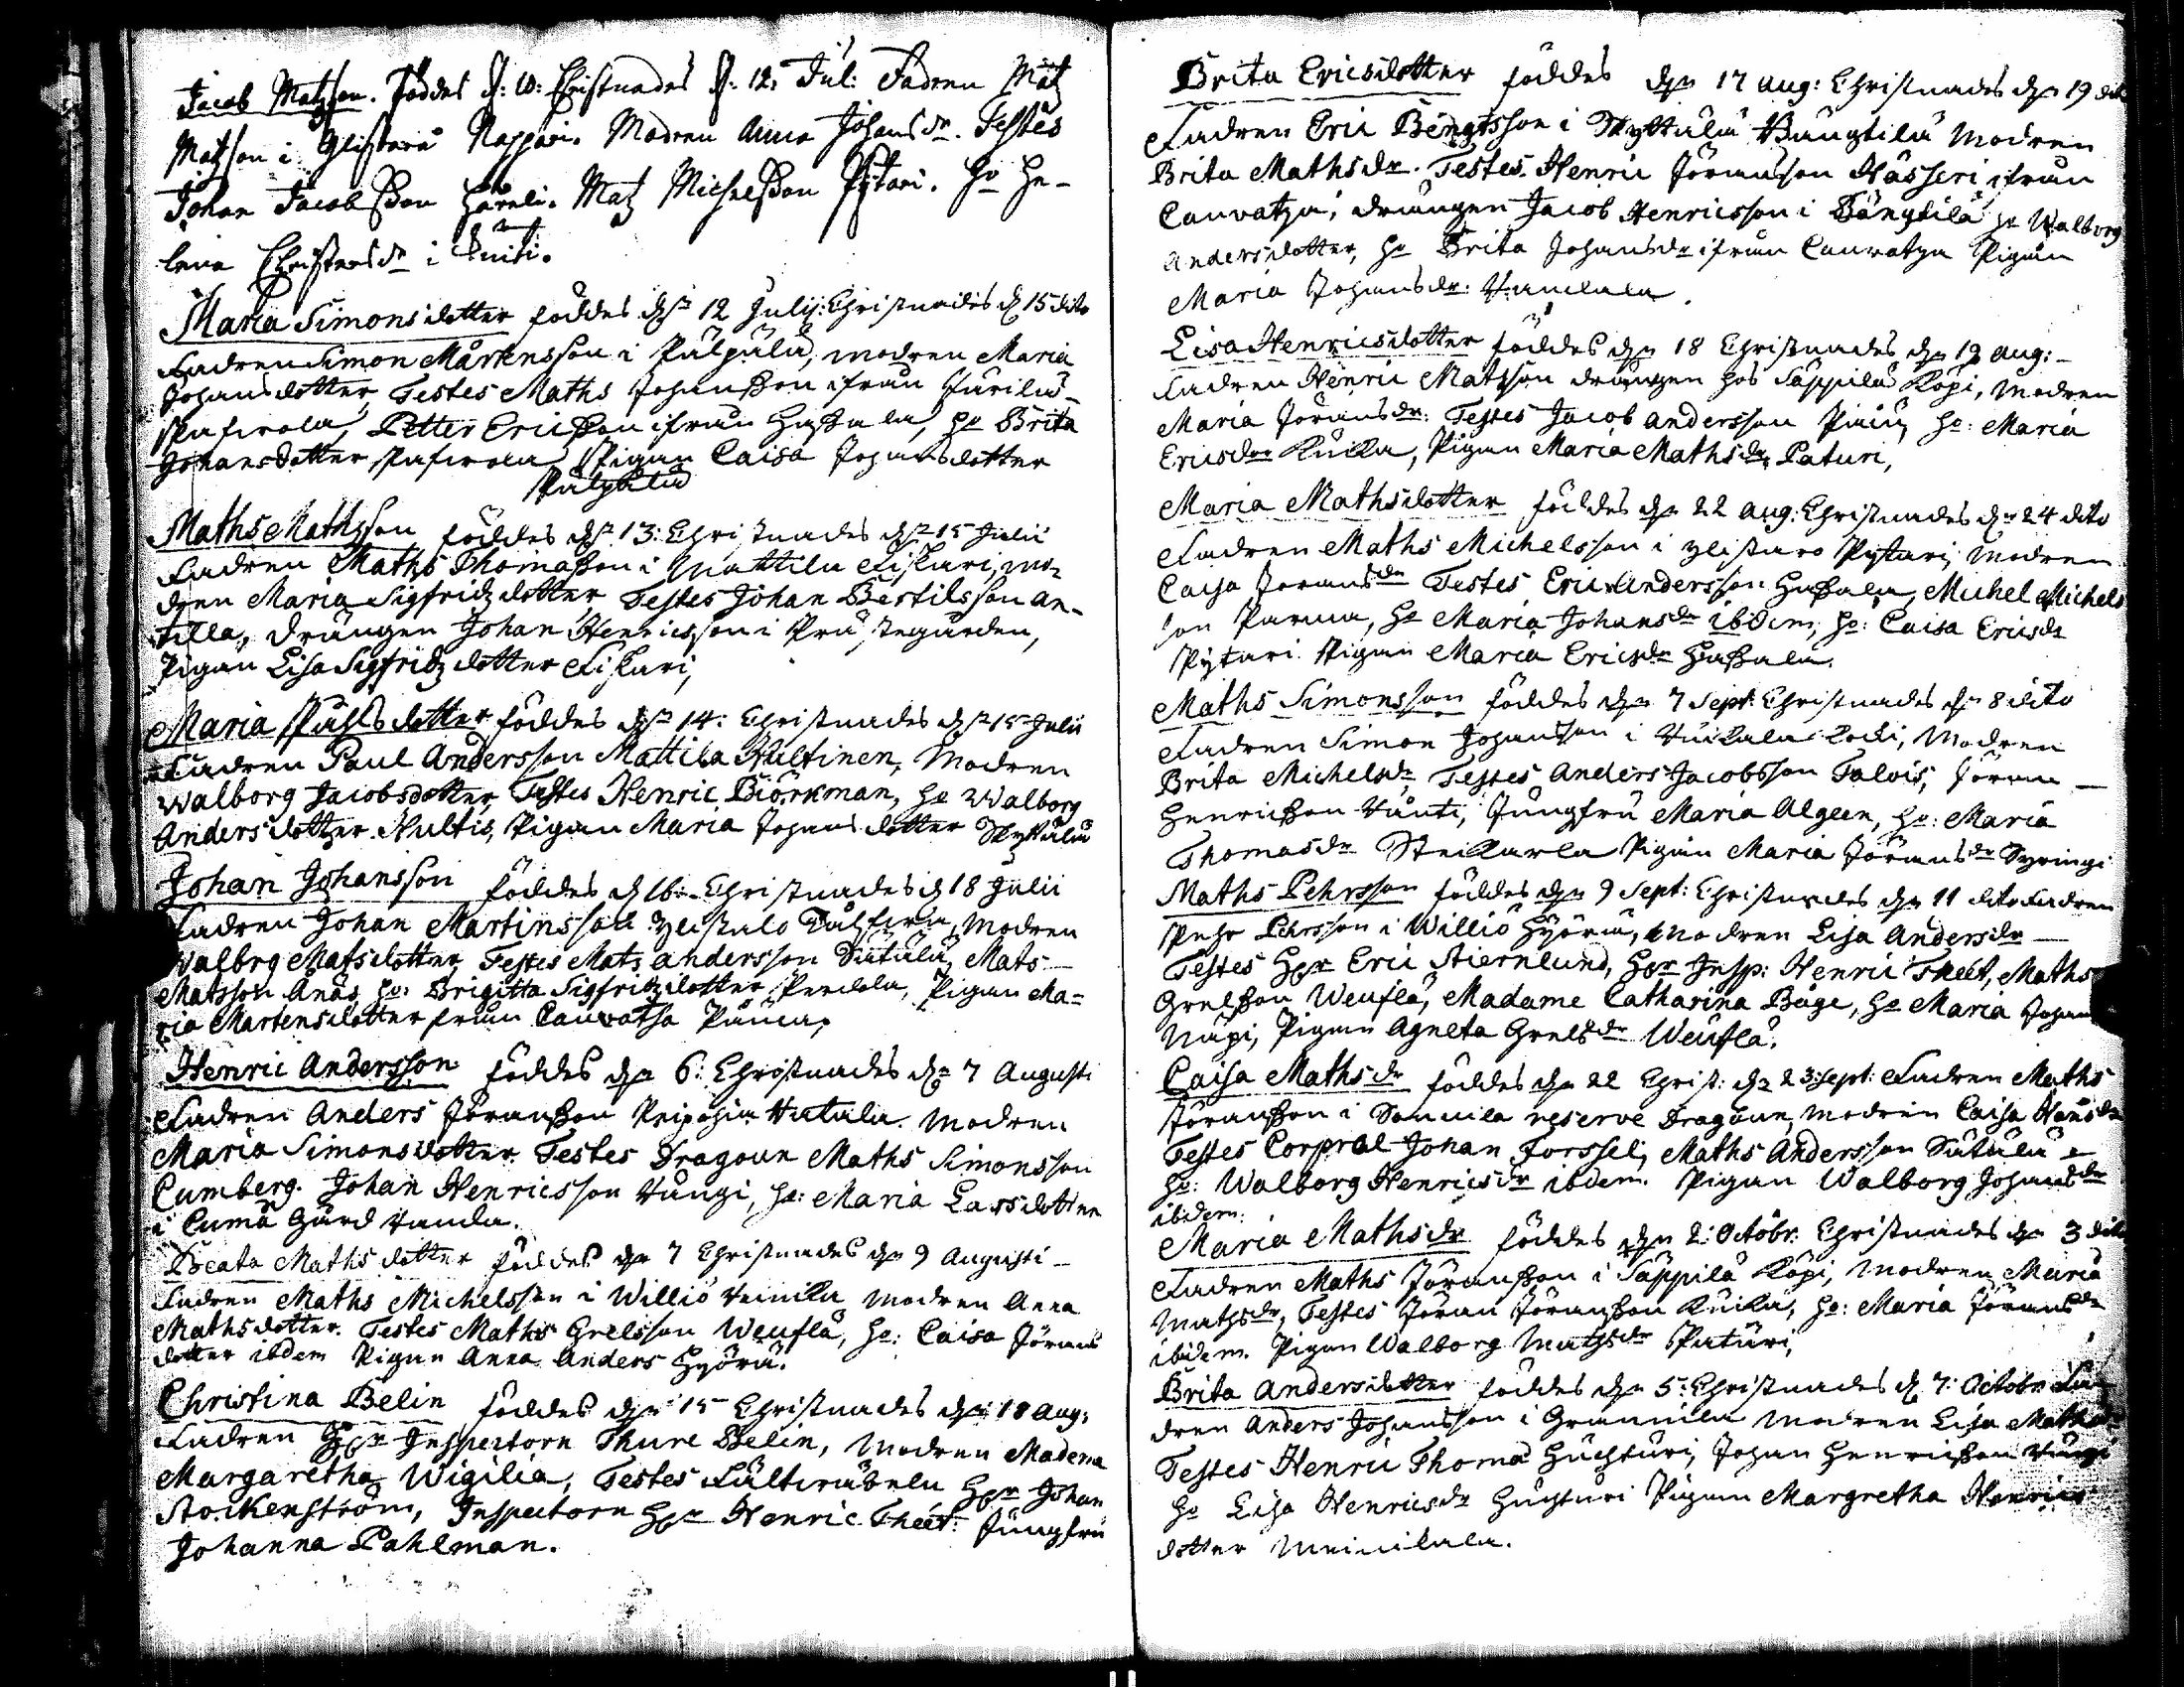 Jacob Matzson. Föddes d: 10: Christnades d: 12. Jul: Fadren Mat
Matzson i Glistarå Nappari. Modren Anna Johansdr. Testes
Johan Jacobsson Håreli. Matz Michelsson Pytari. Ho He-
lena Christersdr i
Maria Simonsdotter föddes dn 12 Julij: Christnades d 15 dito
Fadren Simon Mårtensson i Pälpälä, modren Maria
Johansdotter, Testes Maths Johansson ifrån
Petter Ericsson ifrån Hassala, Ho Brita
Johansdotter Pigan Caisa Johansdotter
Pälpälä
Maths Mathsson föddes dn 13: Christnades dn 15 Julii
Fadren Maths Thomasson i Mattila Fiskari, mo-
dren Maria Sigfridzdotter, Testes Johan Bertilsson An-
tilla, drängen Johan Henricsson i Prästegården,
Pigan Lisa Sigfridzdotter Fiskari,
Maria Påhlsdotter föddes dn 14: Christnades dn 15 Julii
Fadren Paul Andersson Mattila Hultinen, Modren
Walborg Jacobsdotter Testes Henric Biörkman, Ho Walborg
Andersdotter Hultis, Pigan Maria Johansdotter Skyttälä
Johan Johansson föddes d 16: Christnades d 18 Julii
Fadren Johan Martinsson Ylistalo modren
Walbrg Matsdotter, Testes Mats Andersson Sätälä, Mats
Matsson Anäs, Ho: Brigitta Sigfridzdotter Pigan Ma=
ria Martensdotter från Cauvatsa
Henric Andersson föddes dn 6: Christnades dn 7 Augusti
Fadren Anders Jöransson Hatula. Modren
Maria Simonsdotter. Testes Dragoun Maths Simonsson
Cumberg. Johan Henricsson Vångi, Ho: Maria Larsdotter
i Cumå Gård
Beata Mathsdotter föddes dn 7 Christnades dn 9 Augusti
Fadren Maths Michelsson i Williö Veinilä modren Anna
Mathsdotter. Testes Maths Grelsson Weuflä, Ho: Caisa Jörans
dotter ibdem Pigan Anna Anders Hyörä.
Christina Belin föddes dn 15 Christnades dn 18 Aug:
Fadren Hr Inspectorn Thure Belin, Modren Madema
Margaretha Wigilia, Testes Hr Johan
Stockenström, Inspectorn Hr Henric Theet. Jungfru
Johanna Pahlman.
Brita Ericsdotter föddes dn 17 Aug: Christnades dn 19 dito
Fadren Eric Bengtsson i Skyttälä Bängtilä Modren
Brita Mathsdr. Testes. Henric Jöransson Hässeri ifrån
Cauvatza, drängen Jacob Henricsson i Bängtilä Ho Walborg
Andersdotter, Ho Brita Johansdr ifrån Cauvatza Pigan
Maria Johansdr.
Lisa Henricsdotter föddes dn 18 Christnades dn 19 Aug:
Fadren Henric Matsson drängen hos Säppilä Köpi, modren
Maria Jöransdr: Testes Jacob Andersson Ho: Maria
Ericsdr Kuika, Pigan Maria Mathsdr Paturi,
Maria Mathsdotter föddes dn 22 Aug: Christnades dn 24 dito
Fadren Maths Michelsson i Ylistaro Pytari, Modren
Caisa Joransdr Testes Eric Andersson Hassala, Michel Michels
son Parma, Ho Maria Johansdr ibdem, Ho: Caisa Ericsdr
Pytari. Pigan Maria Ericsdr Hassala.
Maths Simonsson föddes dn 7 Sept: Christnades dn 8 dito
Fadren Simon Johansson i Kuckala Modren
Brita Michelsdr, Testes Anders Jacobsson Talois, Jöran
Henricsson Jungfru Maria Algeen, Ho: Maria
Thomasdr Pigan Maria Jöransdr Syringi
Maths Pehrsson föddes dn 9 Sept: Christnades dn 11 dito Fadren
Pehr Pehrsson i Williö Hyörä, Modren Lisa Andersdr
Testes Hr Eric Stiernlund, Hr Insp: Henric Theet, Maths
Grelsson Weuflä, Madame Catharina Båge, Ho Maria Johans
Näpi, Pigan Agneta Grelsdr Weuflä.
Caisa Mathsdr föddes dn 22 Christ: dn 23: Sept: Fadren Maths
Jöransson i Sonnila reserve Dragoun, modren Caisa Hansdr
Testes Corpral Johan Forssel, Maths Andersson Sätälä
Ho: Walborg Henricsdr ibdem. Pigan Walborg Johansdr
ibidem.
Maria Mathsdr föddes dn 2: Octobr: Christnades dn 3 dito
Fadren Maths Jöransson i Säppilä Köpi, modren Maria
Mathsdr, Testes Jöran Jöransson Kuika, Ho: Maria Jöransdr
ibidem. Pigan Walborg Mathsdr Paturi,
Brita Andersdotter föddes dn 5: Christnades d 7: Octobr Fa-
dren Anders Johansson i Grannila Modren Lisa Mathsdr
Testes Henric Thoma Huchturi, Johan Henricsson Vängi
Ho Lisa Henricsdr Huchturi Pigan Margretha Henrics
dotter